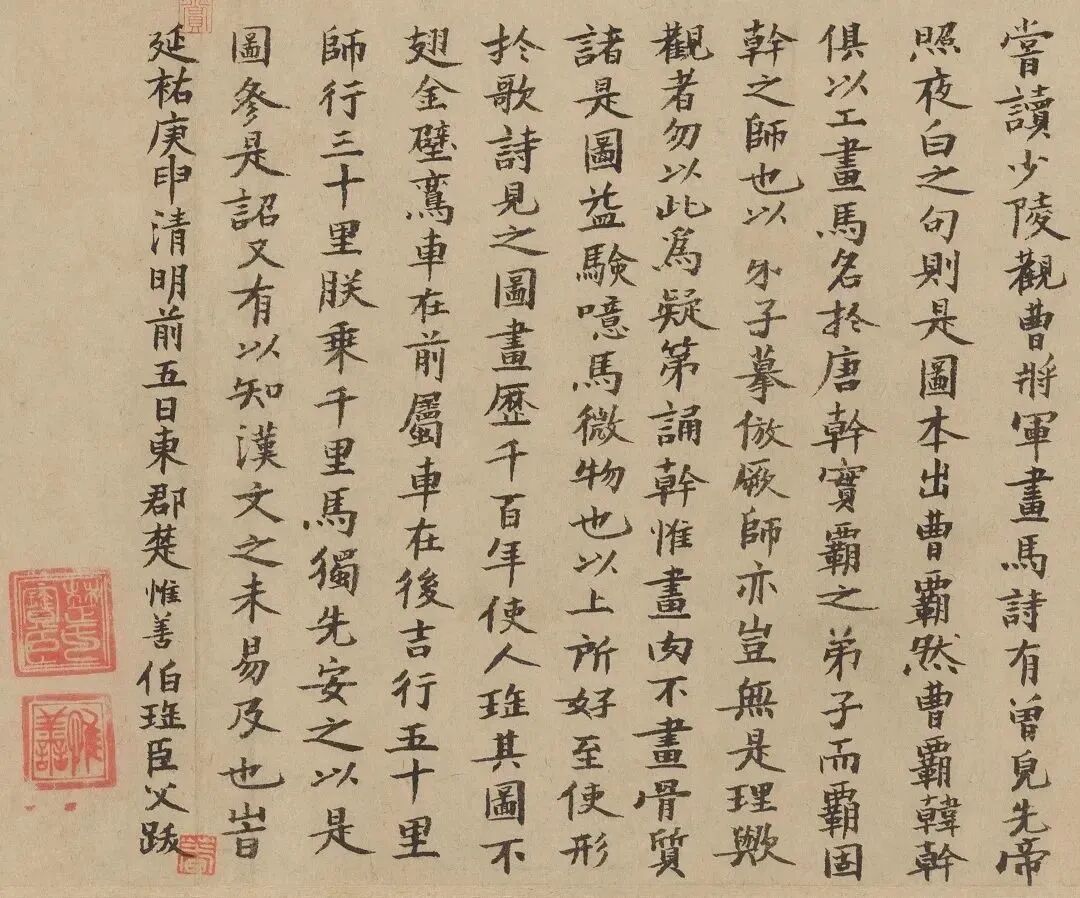 嘗讀少陵觀曹將軍畫馬詩有曾見先帝
照夜白之句則是圖本出曹霸然曹霸韓幹
俱以工畫馬名扵唐幹實霸之弟子而霸固
幹之師也以弟子摹倣厥師亦豈無是理歟
觀者勿以此爲疑第誦幹惟畫肉不畫骨質
諸是圖益驗噫馬微物也以上所好至使形
扵歌詩見之圖畫歷千百年使人珎其圖不
翅金璧鸞車在前屬車在後吉行五十里
師行三十里朕乗千里馬獨先安之以是
圖參是詔又有以知漢文之未易及也旹
延祐庚申清明前五日東郡楚惟善伯珎臣父跋
惟善